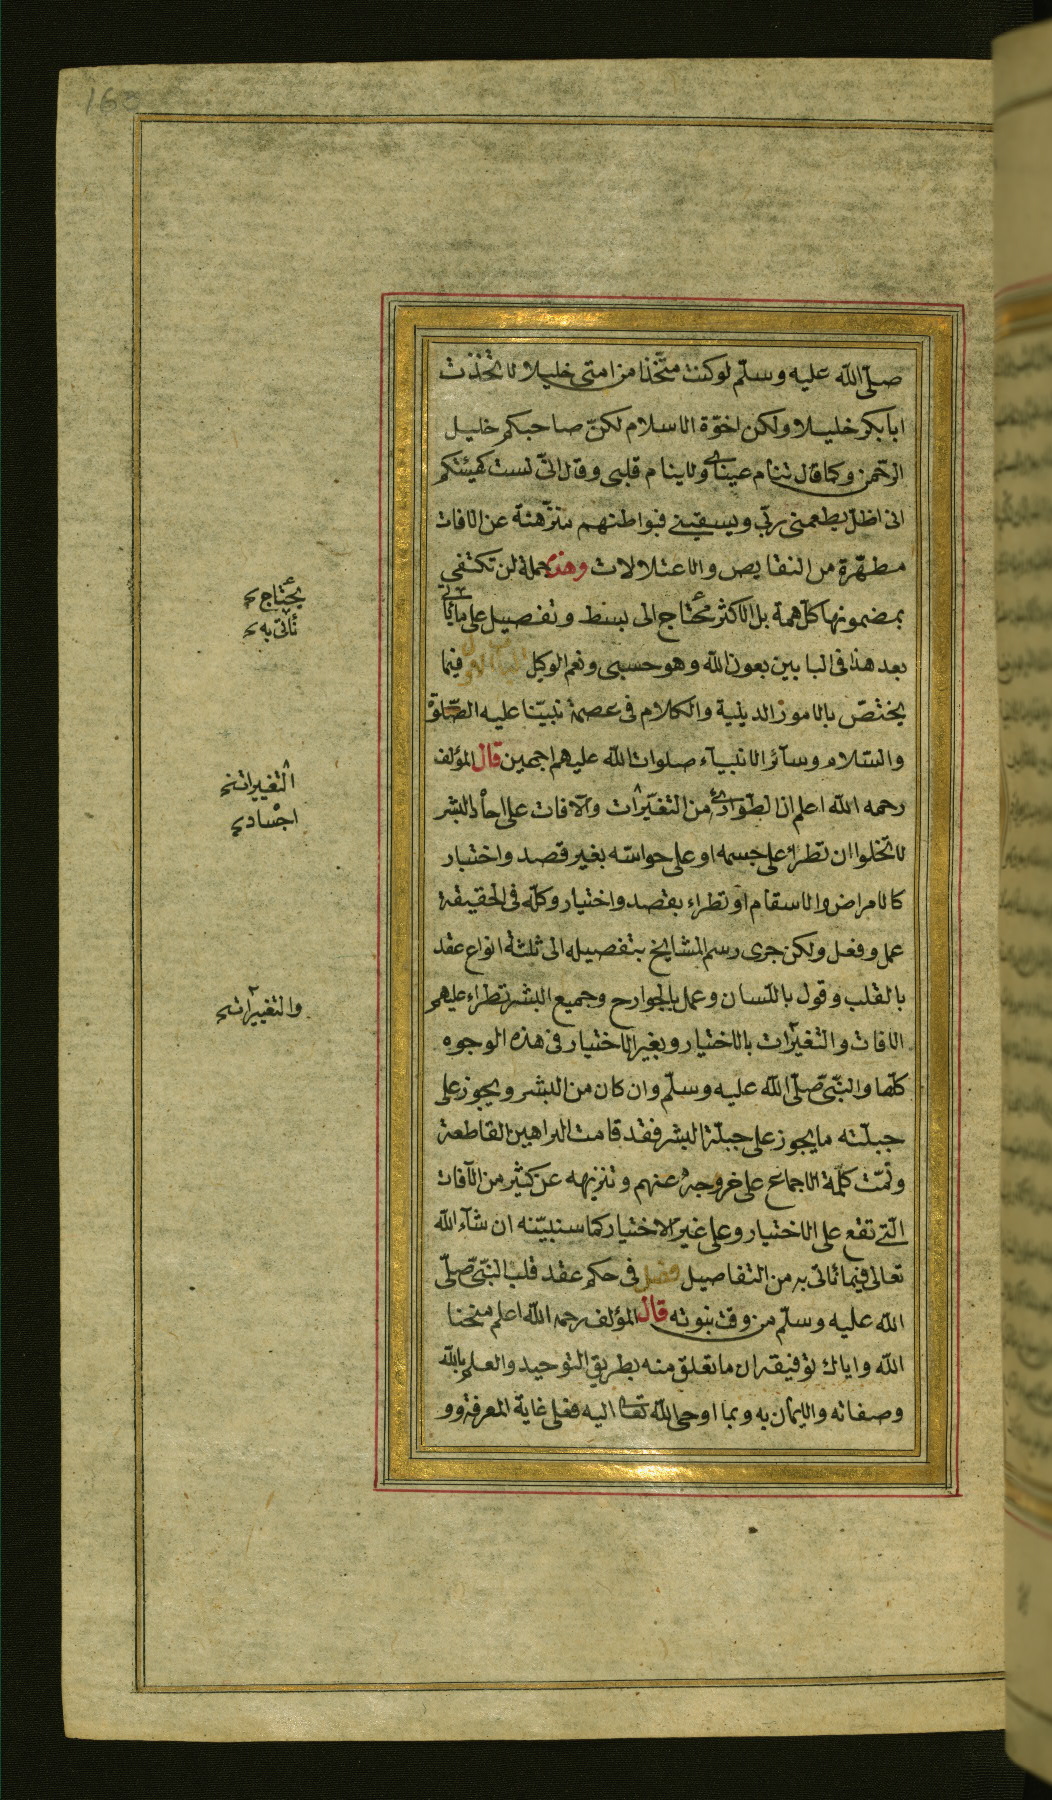 صلّى الله عليه وسلّم لو كنت متّخذا من امتى خليلا لاتّخذت
ابا بكر خليلا ولكن اخوّة الاسلام لكنّ صاحبكم خليل
الرّحمن وكما قال تنام عيناى ولاينام قلبى وقال انّى لست كهيئتكم
انى اظلّ يطعمنى ربّي ويسقيني فبواطنهم منزّهة عن الافات
مطهّرة من النقايص والاعتلالات وهذه جملة لن تكتفي
بمضمونها كلّ همة بل الاكثر محتاج الى بسط وتفصيل على ما يأتى
بعد هذا فى البابين بعون الله وهو حسبى ونعم الوكيل الباب الاول فيما
يختصّ بالامور الدينية والكلام فى عصمة نبيّنا عليه الصّلوة
والسّلام وسآئر الانبيآء صلوات الله عليهم اجمعين قال المؤلف
رحمه الله اعلم ان الطّوارئ من التغيّرات والآفات على احاد البشر
لا تخلوا ان تطرأ على جسمه او على حواسّه بغير قصد واختيار
كالامراض والاسقام او تطراء بقصد واختيار وكلّه فى الحقيقة
عمل وفعل ولكن جرى رسم المشايخ بتفصيله الى ثلثة انواع عقد
بالقلب وقول باللّسان وعمل بالجوارح وجميع البشر تطراء عليهم
الافات والتغيّرات بالاختيار وبغير الاختيار فى هذه الوجوه
كلّها والنّبىّ صلّى الله عليه وسلّم وان كان من البشر ويجوز على
جبلّته ما يجوز على جبلّة البشر فقد قامت البراهين القاطعة
وتمّت كلمة الاجماع على خروجه عنهم وتنزيهه عن كثير من الآفات
الّتي تقع على الاختيار وعلى غير الاختيار كما سنبيّنه ان شآء الله
تعالى فيما نأتى به من التفاصيل فصل فى حكم عقد قلب النّبىّ صلّى
الله عليه وسلّم من وقت نبوته قال المؤلف رحمه الله اعلم منحنا
الله واياك توفيقه ان ما تعلق منه بطريق التوحيد والعلم بالله
وصفاته والايمان به وبما اوحى الله تعالى اليه فعلى غاية المعرفة وو
يحتاج
نأتى به
التغييرات
اجساد
والتغييرات